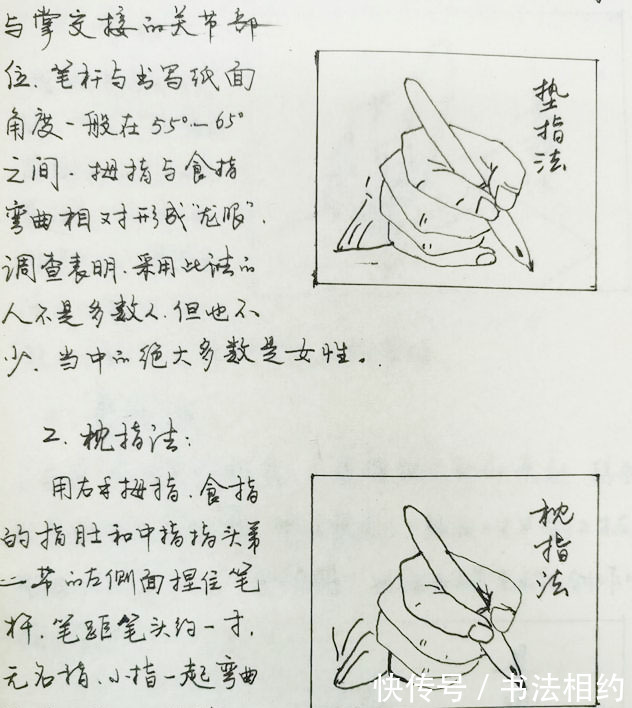 与掌交接的关节部
位.笔杆与书写纸面
角度一般在55°—65°
之间.拇指与食指
弯曲相对形成"龙眼".
调查表明.采用此法的
人不是多数人.但也不
少.当中的绝大多数是女性。
垫指法
2.枕指法:
用右手拇指.食指
的指肚和中指指头第
一节的左侧面捏住笔
杆.笔距笔头约一寸.
无名指.小指一起弯曲
枕指法
快传号/书法相约